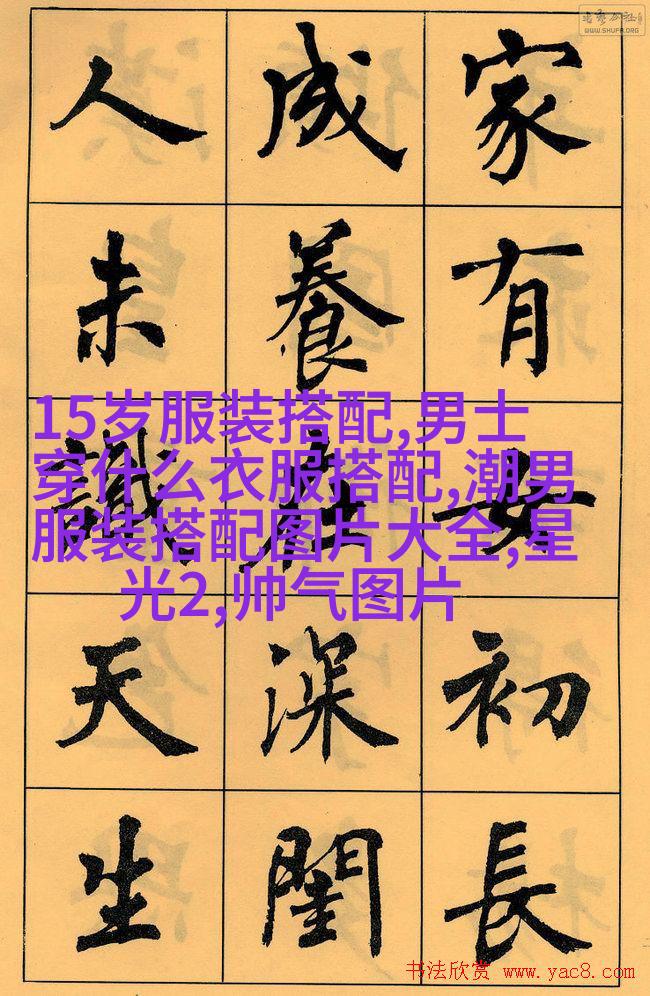 WWW.SHUFA.ORG
家有女初長
成養在深閨
人未識天生
15岁服装搭配,男士
穿什么衣服搭配,潮男
服装搭配图片大全,星
光2,帅气图片
书法欣赏 www.yac8.com